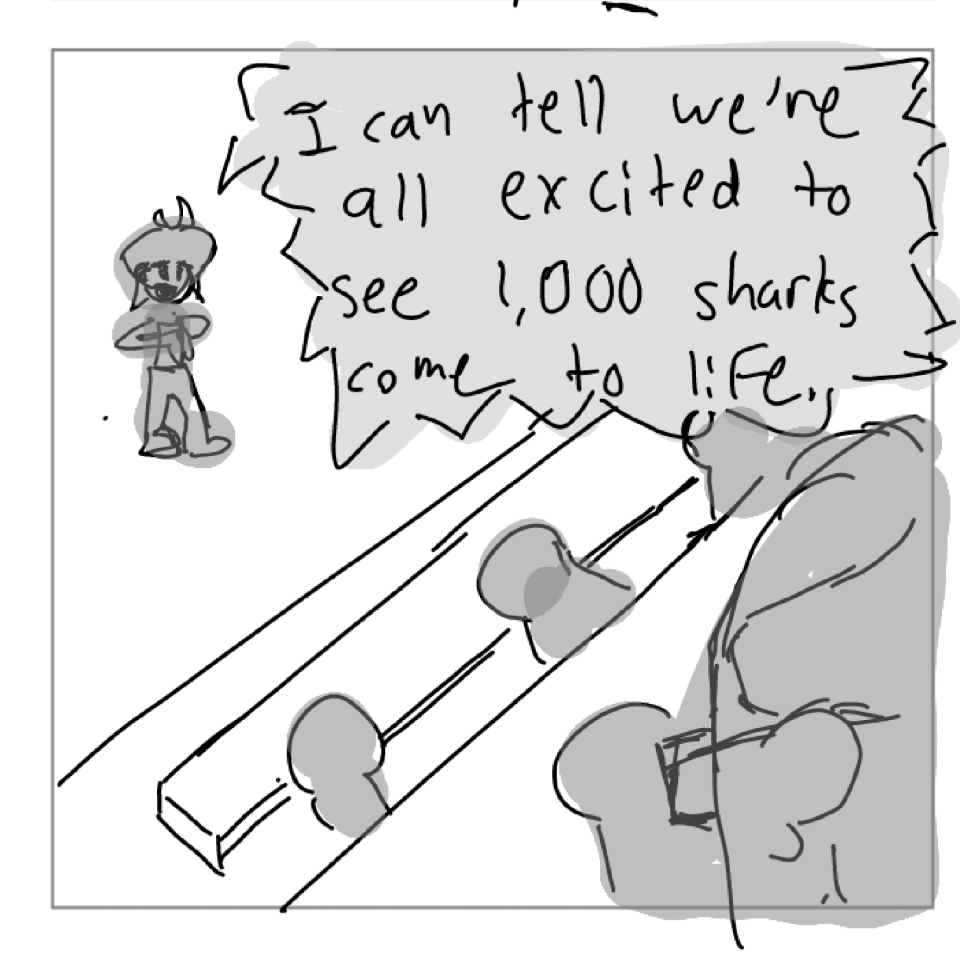 I can tell we're
all excited to
see 1,000 sharks
come to life.